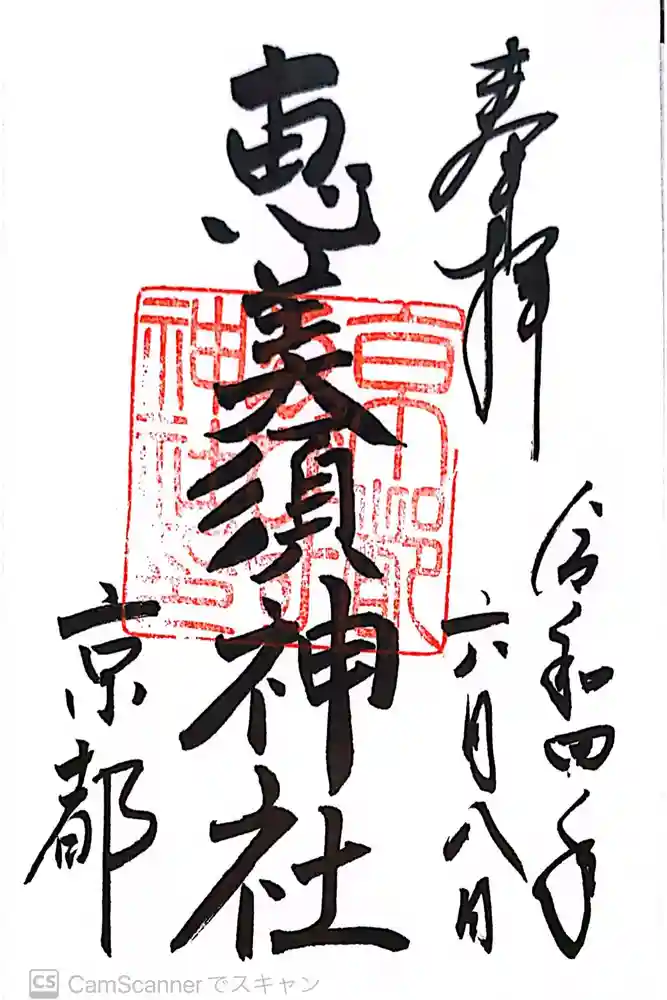 奉拝
令和四年
六月八日
恵美須神社
京都
CamScannerでスキャン